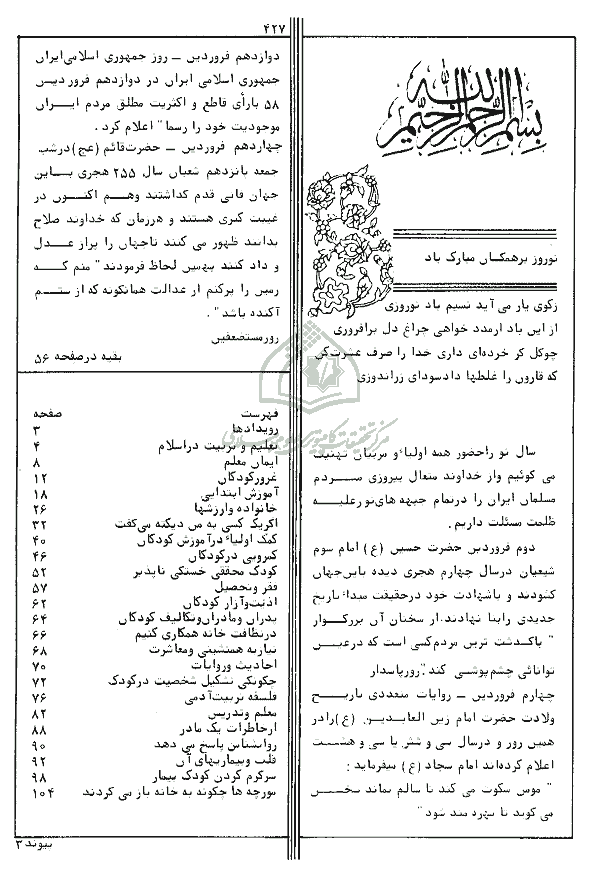 ۴۲۷
بسم الله الرحمن الرحیم
نوروز برهمگان مبارک باد
زکوی یار می آید نسیم باد نوروزی
از این باد ارمدد خواهی چراغ دل برافروزی
چوگل گر خرده‌ای داری خدا را صرف عشرت‌کن
که قارون را غلطها دادسودای زراندوزی
سال نو راحضور همه اولیاء و مربیان تهنیت
می گوئیم واز خداوند متعال پیروزی مـردم
مسلمان ایران را درتمام جبهه های‌نورعلیه
ظلمت مسئلت داریم.
دوم فروردین حضرت حسین (ع) امام سوم
شیعیان درسال چهارم هجری دیده باین‌جهان
گشودند و باشهادت خود درحقیقت مبداء تاریخ
جدیدی رابنا نهادند.از سخنان آن بزرگـوار
" باگذشت ترین مردم‌کسی است که درعین
توانائی چشم‌پوشی کند".روزپاسدار
چهارم فروردین ــ روایات متعددی تاریــخ
ولادت حضرت امام زین العابدیـن (ع)رادر
همین روز و درسال سی و شش یا سی و هشت
اعلام کرده‌اند امام سجاد (ع) میفرماید :
" مومن سکوت می کند تا سالم بماند سخـن
می گوید تا بهره مند شود "
دوازدهم فروردین ــ روز جمهوری اسلامی‌ایران
جمهوری اسلامی ایران در دوازدهم فروردیـن
۵۸ بارأی قاطع و اکثریت مطلق مردم ایــران
موجودیت خود را رسما" اعلام کرد .
چهاردهم فروردین ــ حضرت‌قائم (عج)درشب
جمعه پانزدهم شعبان سال ۲۵۵ هجری بــاین
جهان فانی قدم گذاشتند وهـم اکنــون در
غیبت کبری هستند و هرزمان که خداوند صلاح
بدانند ظهور می کنند تاجهان را پراز عــدل
و داد کنند بهمین لحاظ فرمودند " منم کــه
زمین را پرکنم از عدالت همانگونه که از ستـم
آکنده باشد " .
روزمستضعفین
بقیه درصفحه ۵۶
فهرست صفحه
رویدادها ۳
تعلیم و تربیت دراسلام ۴
ایمان معلم ۸
غرورکودکان ۱۲
آموزش ابتدایی ۱۸
خانواده وارزشها ۲۶
اگریک کسی به من دیکته می‌گفت ۳۲
کمک اولیاء درآموزش کودکان ۴۰
کمرویی درکودکان ۴۶
کودک محققی خستگی ناپذیر ۵۲
فقر وتحصیل ۵۷
اذیت‌وآزار کودکان ۶۲
پدران ومادران‌وتکالیف کودکان ۶۴
درنظافت خانه همکاری کنیم ۶۶
نیازبه همنشینی ومعاشرت ۶۸
احادیث وروایات ۷۰
چگونگی تشکیل شخصیت درکودک ۷۲
فلسفه تربیت‌آدمی ۷۶
معلم وتدریس ۸۲
ازخاطرات یک مادر ۸۸
روانشناس پاسخ می دهد ۹۰
قلب وبیماریهای آن ۹۲
سرگرم کردن کودک بیمار ۹۸
مورچه ها چگونه به خانه باز می گردند ۱۰۴
پیوند ۳